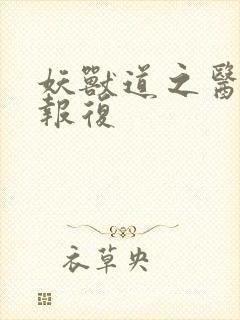 妖獸道之醫
報復
衣草央